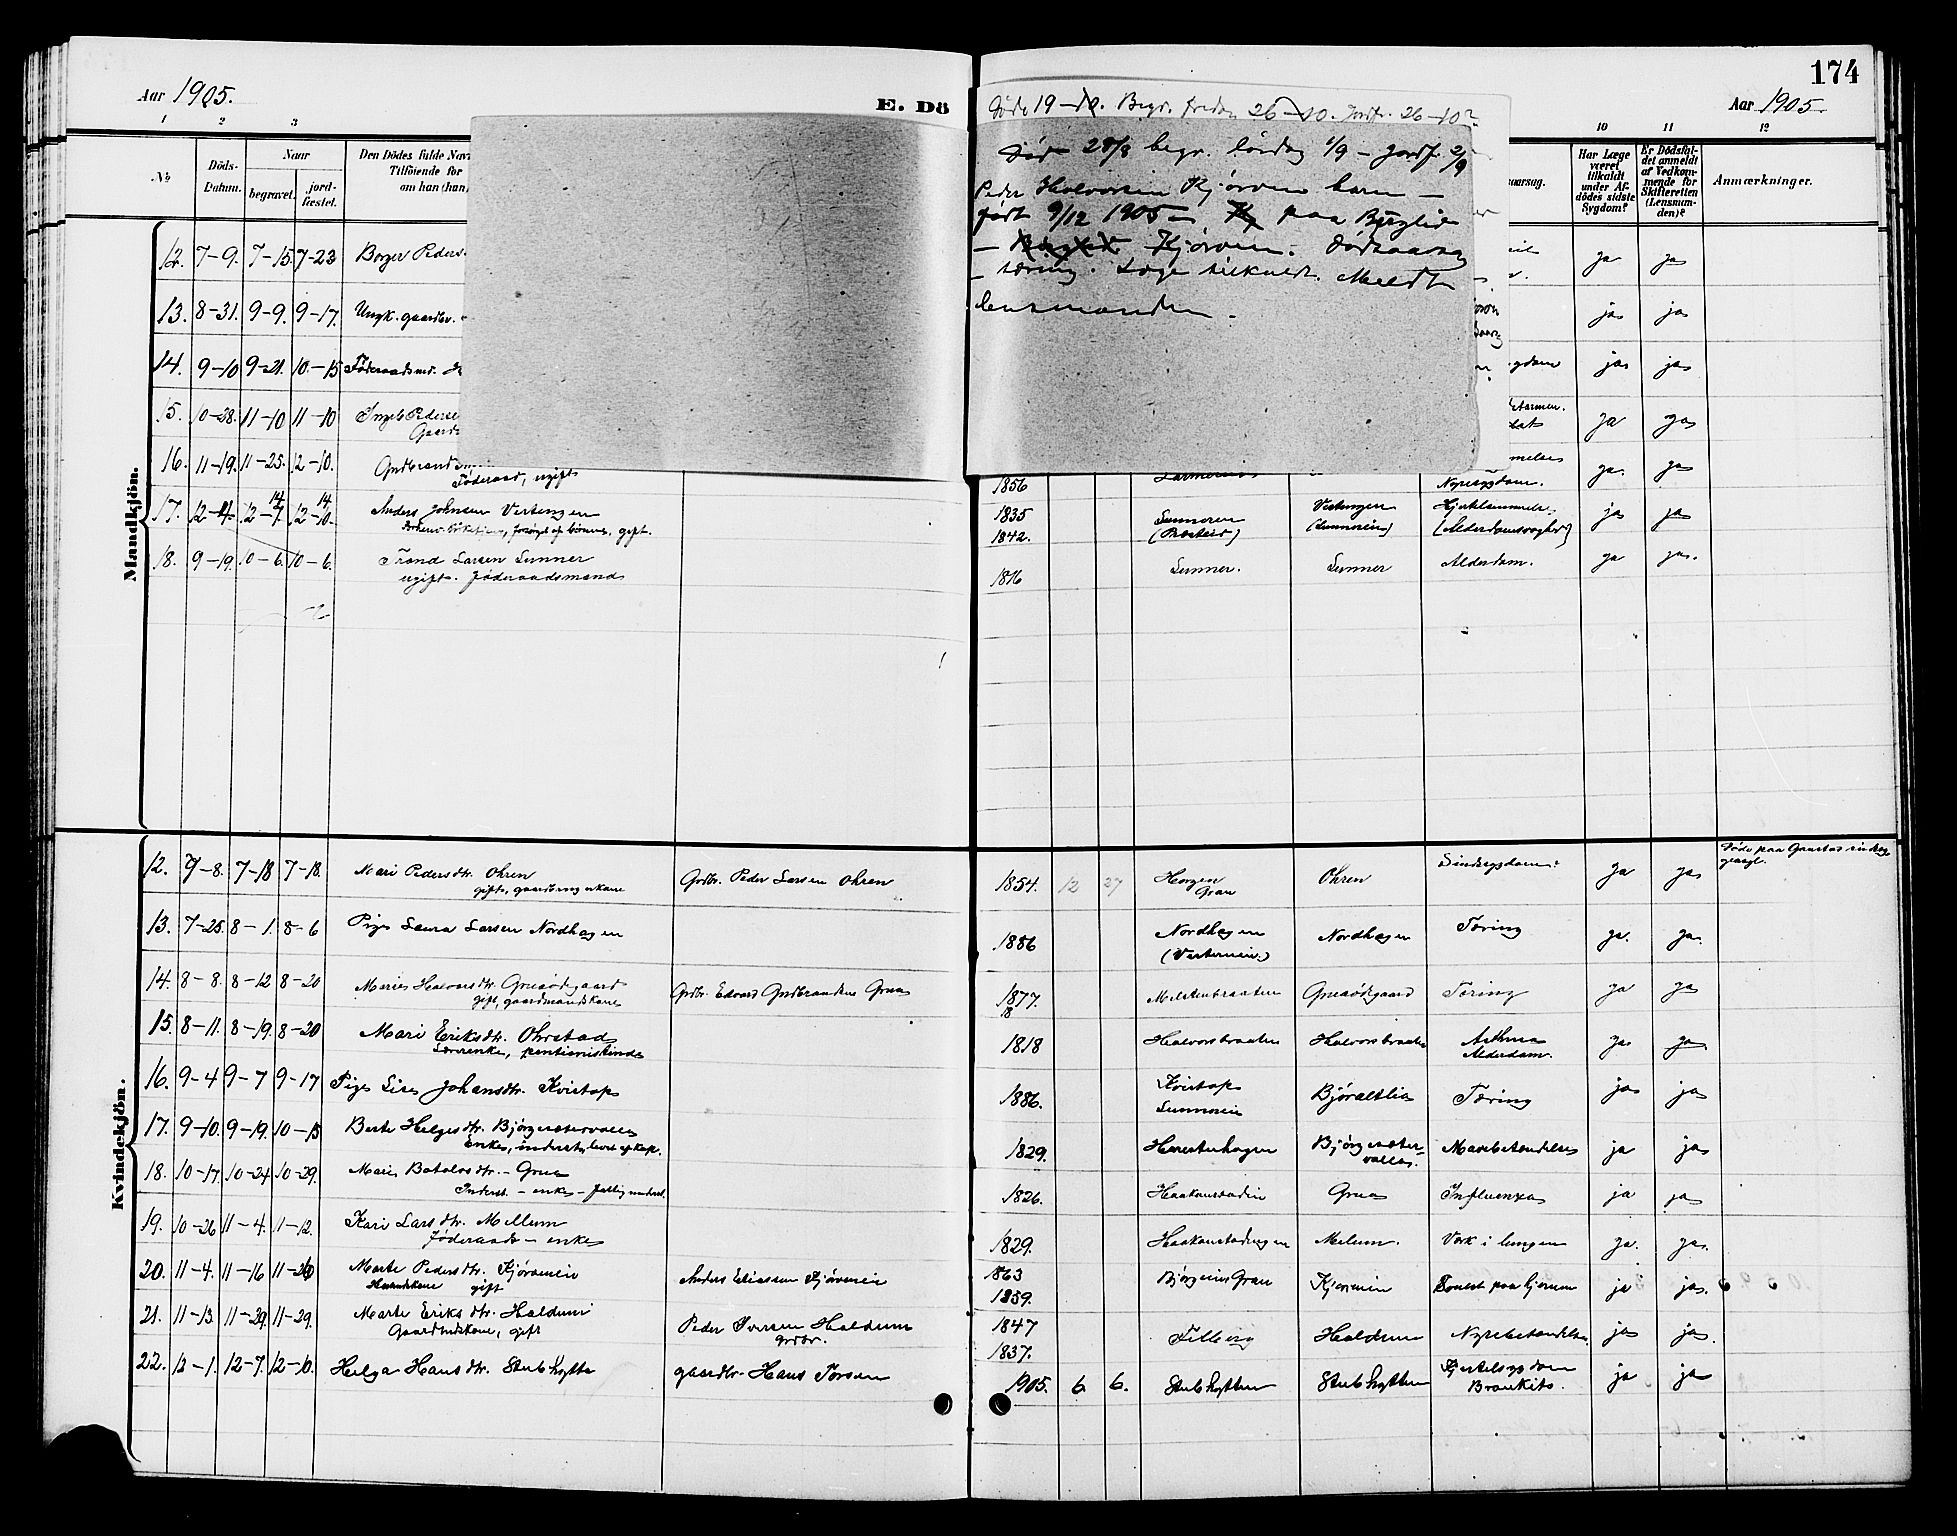 174
Aar 1905.
E. Dö
Aar 1905.
1 2 3
10 11 12
No
Döds-Datum.
Naar
begravet.
jord-fæstet.
Den Dödes fulde Nav
Tilföiende for
om han (hun)
aarsag.
Har Læge været tilkaldt under Afdödes sidste Sygdom?
Er Dödsfaldet anmeldt af Vedkommende for Skifteretten (Lensmanden)?
Anmærkninger.
Begr. fredag 26-10. Jordf. 26-10?
Död 28/8 begr. lördag 1/9 - jordf. 2/9
Peder Halvorsen Kjörven barn -
födt 9/12 1905 - paa Berglie
- Kjörven. Dödsaarsag
- tæring. Læge tilkaldt. Meldt
lensmanden.
Mandkjön.
12. 7-9. 7-15. 7-23 Borger Peders. ja ja
13. 8-31. 9-9. 9-17. Ungk. gaardbr. ja ja
14. 9-10 9-21. 10-15 Föderaadsmd. ygdom ja ja
15. 10-28. 11-10 11-10 Ingeb. Peders
Gaard ja ja
16. 11-19. 11-25. 12-10. Gudbrand
Föderaad, ugift 1856 melse
Nyresygdom. ja. ja
17. 12-4. 12-7. 14 12-10. 14 Anders Johnsen Vestengen
forsörget af börnene, gift. 1835
1842. Sunnoren Vestengen
(Sunnoreie) Hjertelammelse
(Alderdomssvaghed) ja ja
18. 9-19. 10-6. 10-6. Trond Larsen Lunner
ugift. föderaadsmand 1816 Lunner. Lunner Alderdom. ja ja.
Kvindekjön.
12. 7-8. 7-18 7-18. Mari Pedersdtr. Ohren
gift, gaardbrugerkone Grdbr. Peder Larsen Ohren 1854. 12 27 Horgen
Gran Ohren Sindssygdom? ja ja Döde paa Gaustad sindssygeasyl.
13. 7-25. 8-1. 8-6 Pige Laura Larsen Nordhagen 1886 Nordhagen
(Vesterneie.) Nordhagen Tæring ja. ja.
14. 8-8. 8-12 8-20 Marie Halvorsdtr. Grueödegaard
gift, gaardmandskone Grdbr. Edvard Gudbrandsen Grua 1877.
18 Melstenbraaten Grueödegaard Tæring ja ja
15. 8-11. 8-19. 8-20 Mari Eriksdtr. Ohrstad
Lærerenke, pentioniskinde 1818 Halvorsbraaten Halvorsbraaten Asthma
Alderdom. ja ja
16. 9-4 9-7 9-17 Pige Lise Johansdtr. Kvistop 1886. Kvistop
Lunnereie Björaltlia Tæring ja ja
17. 9-10. 9-19. 10-15 Berte Helgesdtr. Björgesætervolla
Enke, inderst, levet af kap. 1829. Haresterhagen Björgesætervolla. Mavebetændelse ja ja
18. 10-17. 10-24 10-29. Mari Botolvsdtr. - Grua
Inderst. - enke - fattigunderst. 1826. Haakonstadeie Grua Influenza ja ja
19. 10-26 11-4. 11-12. Kari Larsdtr. Mellum
Föderaads - enke 1829. Haakonstadhagen Melum. Værk i lungen ja. ja.
20. 11-4. 11-16 11-26 Marte Pedersdtr. Kjörveneie
Husmandskone gift Anders Eliassen Kjörveneie 1863
1859. Björgeeie Gran Kjörveneie Svulst paa hjernen ja ja.
21. 11-13. 11-29. 11-29. Marte Eriksdtr. Haldum
Gaardmdskone, gift Peder Iversen Haldum
grdbr. 1847
1837. Tilberg Haldum Nyrebetændelse ja ja.
22. 12-1. 12-7. 12-10. Helga Hansdtr. Stubhytta gaardbr. Hans Torsen 1905. 6. 6. Stubhytten Stubhytten Hjertelsygdom
Bronkits. ja ja